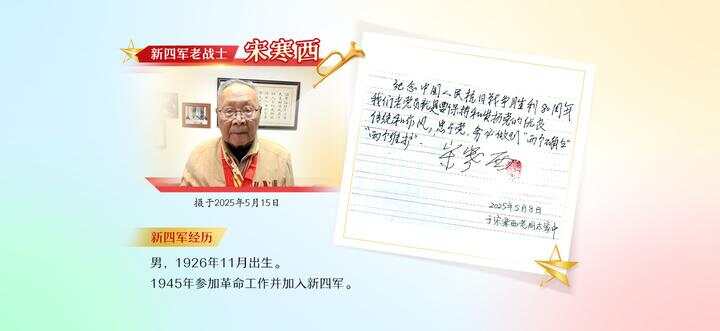 新四军老战士
宋寒西
摄于2025年5月15日
新四军经历
男，1926年11月出生。
1945年参加革命工作并加入新四军。
纪念中国人民抗日战争胜利80周年
我们老党员就是要保持和发扬党的优良
传统和作风，忠于党，务必做到“两个确立”
“两个维护”。
宋寒西
2025年5月8日
于宋寒西老同志家中